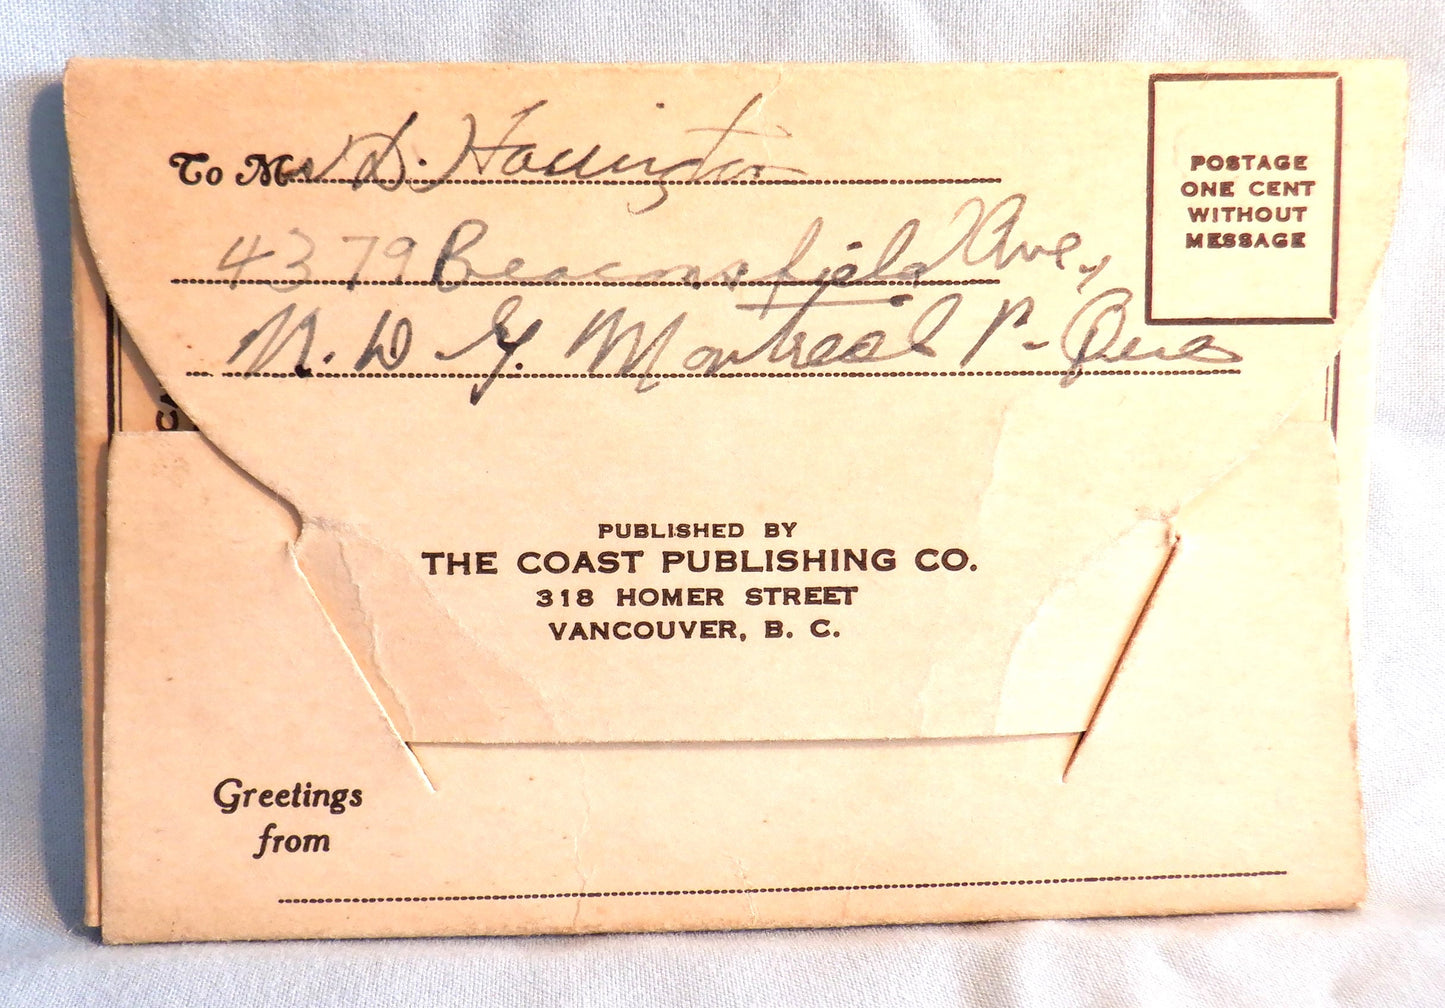 To Mr D. Harrington
4379 Beaconsfield Ave.,
N. D. G. Montreal P- Que
POSTAGE
ONE CENT
WITHOUT
MESSAGE
CA
PUBLISHED BY
THE COAST PUBLISHING CO.
318 HOMER STREET
VANCOUVER, B. C.
Greetings
from